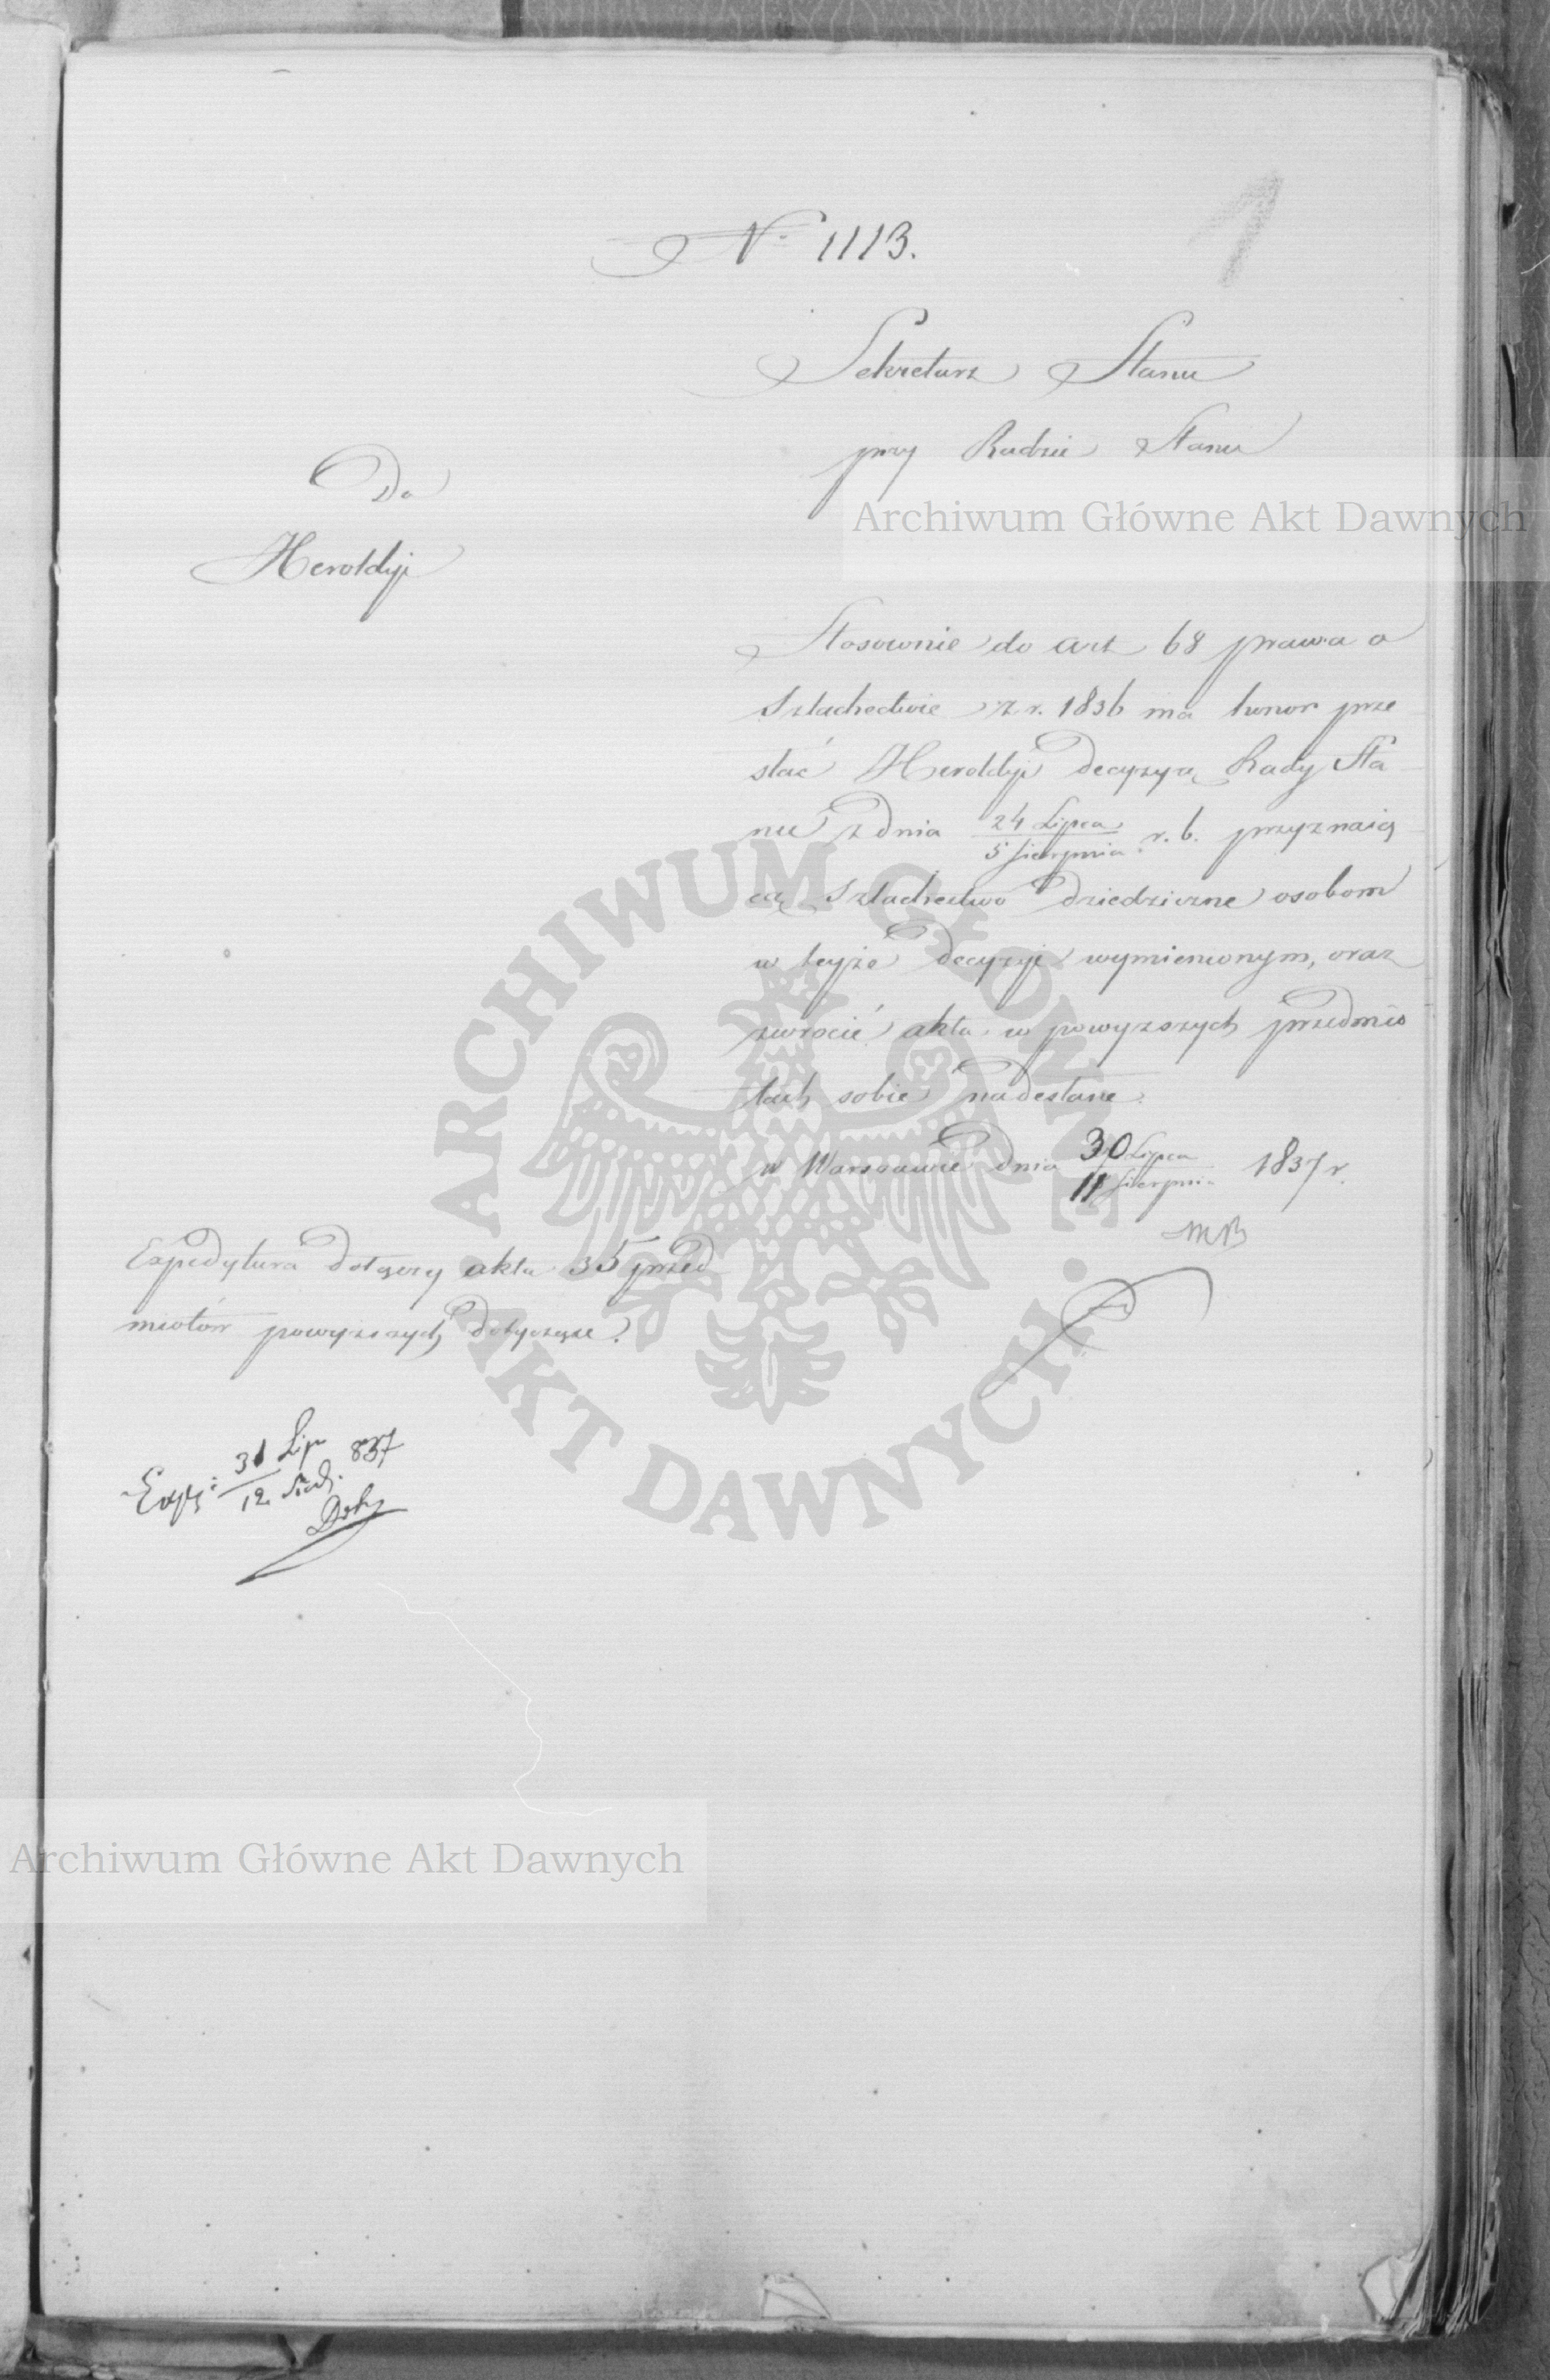 1
N° 1113.
Sekretarz Stanu
przy Radzie Stanu
Do
Heroldyi
Archiwum Główne Akt Dawnych
Stosownie do art 68 prawa o
Szlachectwie z r. 1836 ma honor prze
słać Heroldyi decyzyą Rady Sta
nu z dnia 24 Lipca / 5 Sierpnia r. b. przyznaią
cą Szlachectwo dziedziczne osobom
w teyże decyzyi wymienionym, oraz
zwrócić akta w powyższych przedmio
tach sobie nadesłane.
w Warszawie dnia 30 Lipca / 11 Sierpnia 1837 r.
MB
Expedytura dołączy akta 35 przed
miotów powyższych dotyczące.
Exp: 31 Lip / 12 837
ARCHIWUM GŁÓWNE
AKT DAWNYCH
Archiwum Główne Akt Dawnych